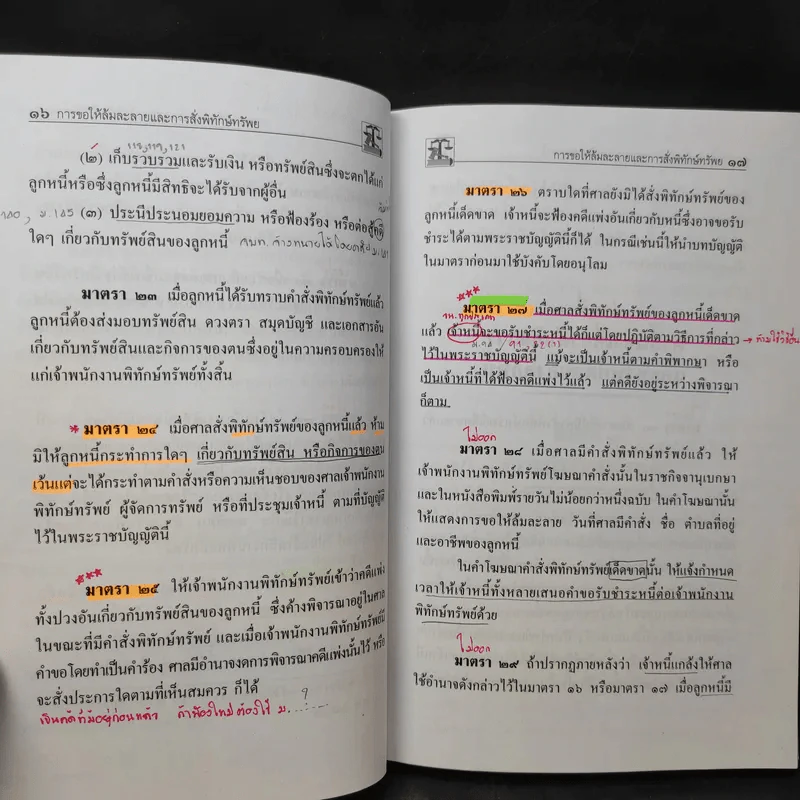 ๑๖ การขอให้ล้มละลายและการสั่งพิทักษ์ทรัพย์
118,119,121
(๒) เก็บรวบรวมและรับเงิน หรือทรัพย์สินซึ่งจะตกได้แก่
ลูกหนี้หรือซึ่งลูกหนี้มีสิทธิจะได้รับจากผู้อื่น
ม.145 (๓) ประนีประนอมยอมความ หรือฟ้องร้อง หรือต่อสู้คดี
ใดๆ เกี่ยวกับทรัพย์สินของลูกหนี้
มาตรา ๒๓ เมื่อลูกหนี้ได้รับทราบคำสั่งพิทักษ์ทรัพย์แล้ว
ลูกหนี้ต้องส่งมอบทรัพย์สิน ดวงตรา สมุดบัญชี และเอกสารอัน
เกี่ยวกับทรัพย์สินและกิจการของตนซึ่งอยู่ในความครอบครองให้
แก่เจ้าพนักงานพิทักษ์ทรัพย์ทั้งสิ้น
* มาตรา ๒๔ เมื่อศาลสั่งพิทักษ์ทรัพย์ของลูกหนี้แล้ว ห้าม
มิให้ลูกหนี้กระทำการใดๆ เกี่ยวกับทรัพย์สิน หรือกิจการของตน
เว้นแต่จะได้กระทำตามคำสั่งหรือความเห็นชอบของศาลเจ้าพนักงาน
พิทักษ์ทรัพย์ ผู้จัดการทรัพย์ หรือที่ประชุมเจ้าหนี้ ตามที่บัญญัติ
ไว้ในพระราชบัญญัตินี้
***
มาตรา ๒๕ ให้เจ้าพนักงานพิทักษ์ทรัพย์เข้าว่าคดีแพ่ง
ทั้งปวงอันเกี่ยวกับทรัพย์สินของลูกหนี้ ซึ่งค้างพิจารณาอยู่ในศาล
ในขณะที่มีคำสั่งพิทักษ์ทรัพย์ และเมื่อเจ้าพนักงานพิทักษ์ทรัพย์มี
คำขอโดยทำเป็นคำร้อง ศาลมีอำนาจงดการพิจารณาคดีแพ่งนั้นไว้ หรือ
จะสั่งประการใดตามที่เห็นสมควร ก็ได้
ถ้าฟ้องใหม่ต้องใช้ ม. ...... ?
การขอให้ล้มละลายและการสั่งพิทักษ์ทรัพย์ ๑๗
มาตรา ๒๖ ตราบใดที่ศาลยังมิได้สั่งพิทักษ์ทรัพย์ของ
ลูกหนี้เด็ดขาด เจ้าหนี้จะฟ้องคดีแพ่งอันเกี่ยวกับหนี้ซึ่งอาจขอรับ
ชำระได้ตามพระราชบัญญัตินี้ก็ได้ ในกรณีเช่นนี้ให้นำบทบัญญัติ
ในมาตราก่อนมาใช้บังคับโดยอนุโลม
***
มาตรา ๒๗ เมื่อศาลสั่งพิทักษ์ทรัพย์ของลูกหนี้เด็ดขาด
แล้ว เจ้าหนี้จะขอรับชำระหนี้ได้ก็แต่โดยปฏิบัติตามวิธีการที่กล่าว → ห้ามใช้วิธีอื่น
ไว้ในพระราชบัญญัตินี้ แม้จะเป็นเจ้าหนี้ตามคำพิพากษา หรือ
เป็นเจ้าหนี้ที่ได้ฟ้องคดีแพ่งไว้แล้ว แต่คดียังอยู่ระหว่างพิจารณา
ก็ตาม
ไม่ออก
มาตรา ๒๘ เมื่อศาลมีคำสั่งพิทักษ์ทรัพย์แล้ว ให้
เจ้าพนักงานพิทักษ์ทรัพย์โฆษณาคำสั่งนั้นในราชกิจจานุเบกษา
และในหนังสือพิมพ์รายวันไม่น้อยกว่าหนึ่งฉบับ ในคำโฆษณานั้น
ให้แสดงการขอให้ล้มละลาย วันที่ศาลมีคำสั่ง ชื่อ ตำบลที่อยู่
และอาชีพของลูกหนี้
ในคำโฆษณาคำสั่งพิทักษ์ทรัพย์เด็ดขาดนั้น ให้แจ้งกำหนด
เวลาให้เจ้าหนี้ทั้งหลายเสนอคำขอรับชำระหนี้ต่อเจ้าพนักงาน
พิทักษ์ทรัพย์ด้วย
ไม่ออก
มาตรา ๒๙ ถ้าปรากฏภายหลังว่า เจ้าหนี้แกล้งให้ศาล
ใช้อำนาจดังกล่าวไว้ในมาตรา ๑๖ หรือมาตรา ๑๗ เมื่อลูกหนี้มี